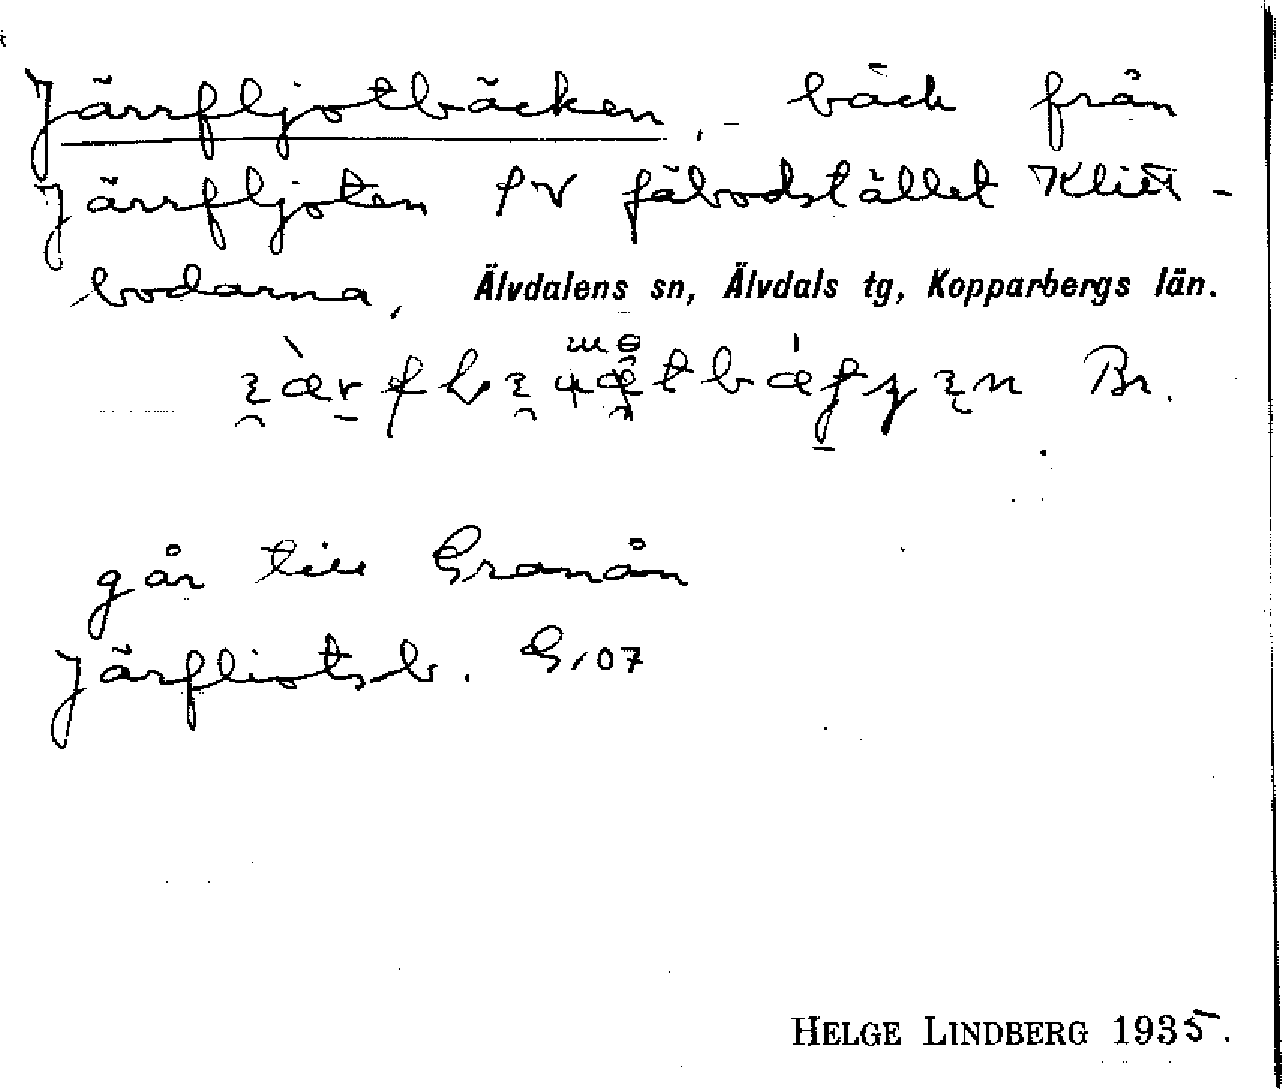 Järrfljotbäcken, - bäck från
Järrfljoten SV fäbodstället Klitt-
bodarna, Älvdalens sn, Älvdals tg, Kopparbergs län.
Br.
går till Granån
Järfliotsb. G, 07
HELGE LINDBERG 1935.